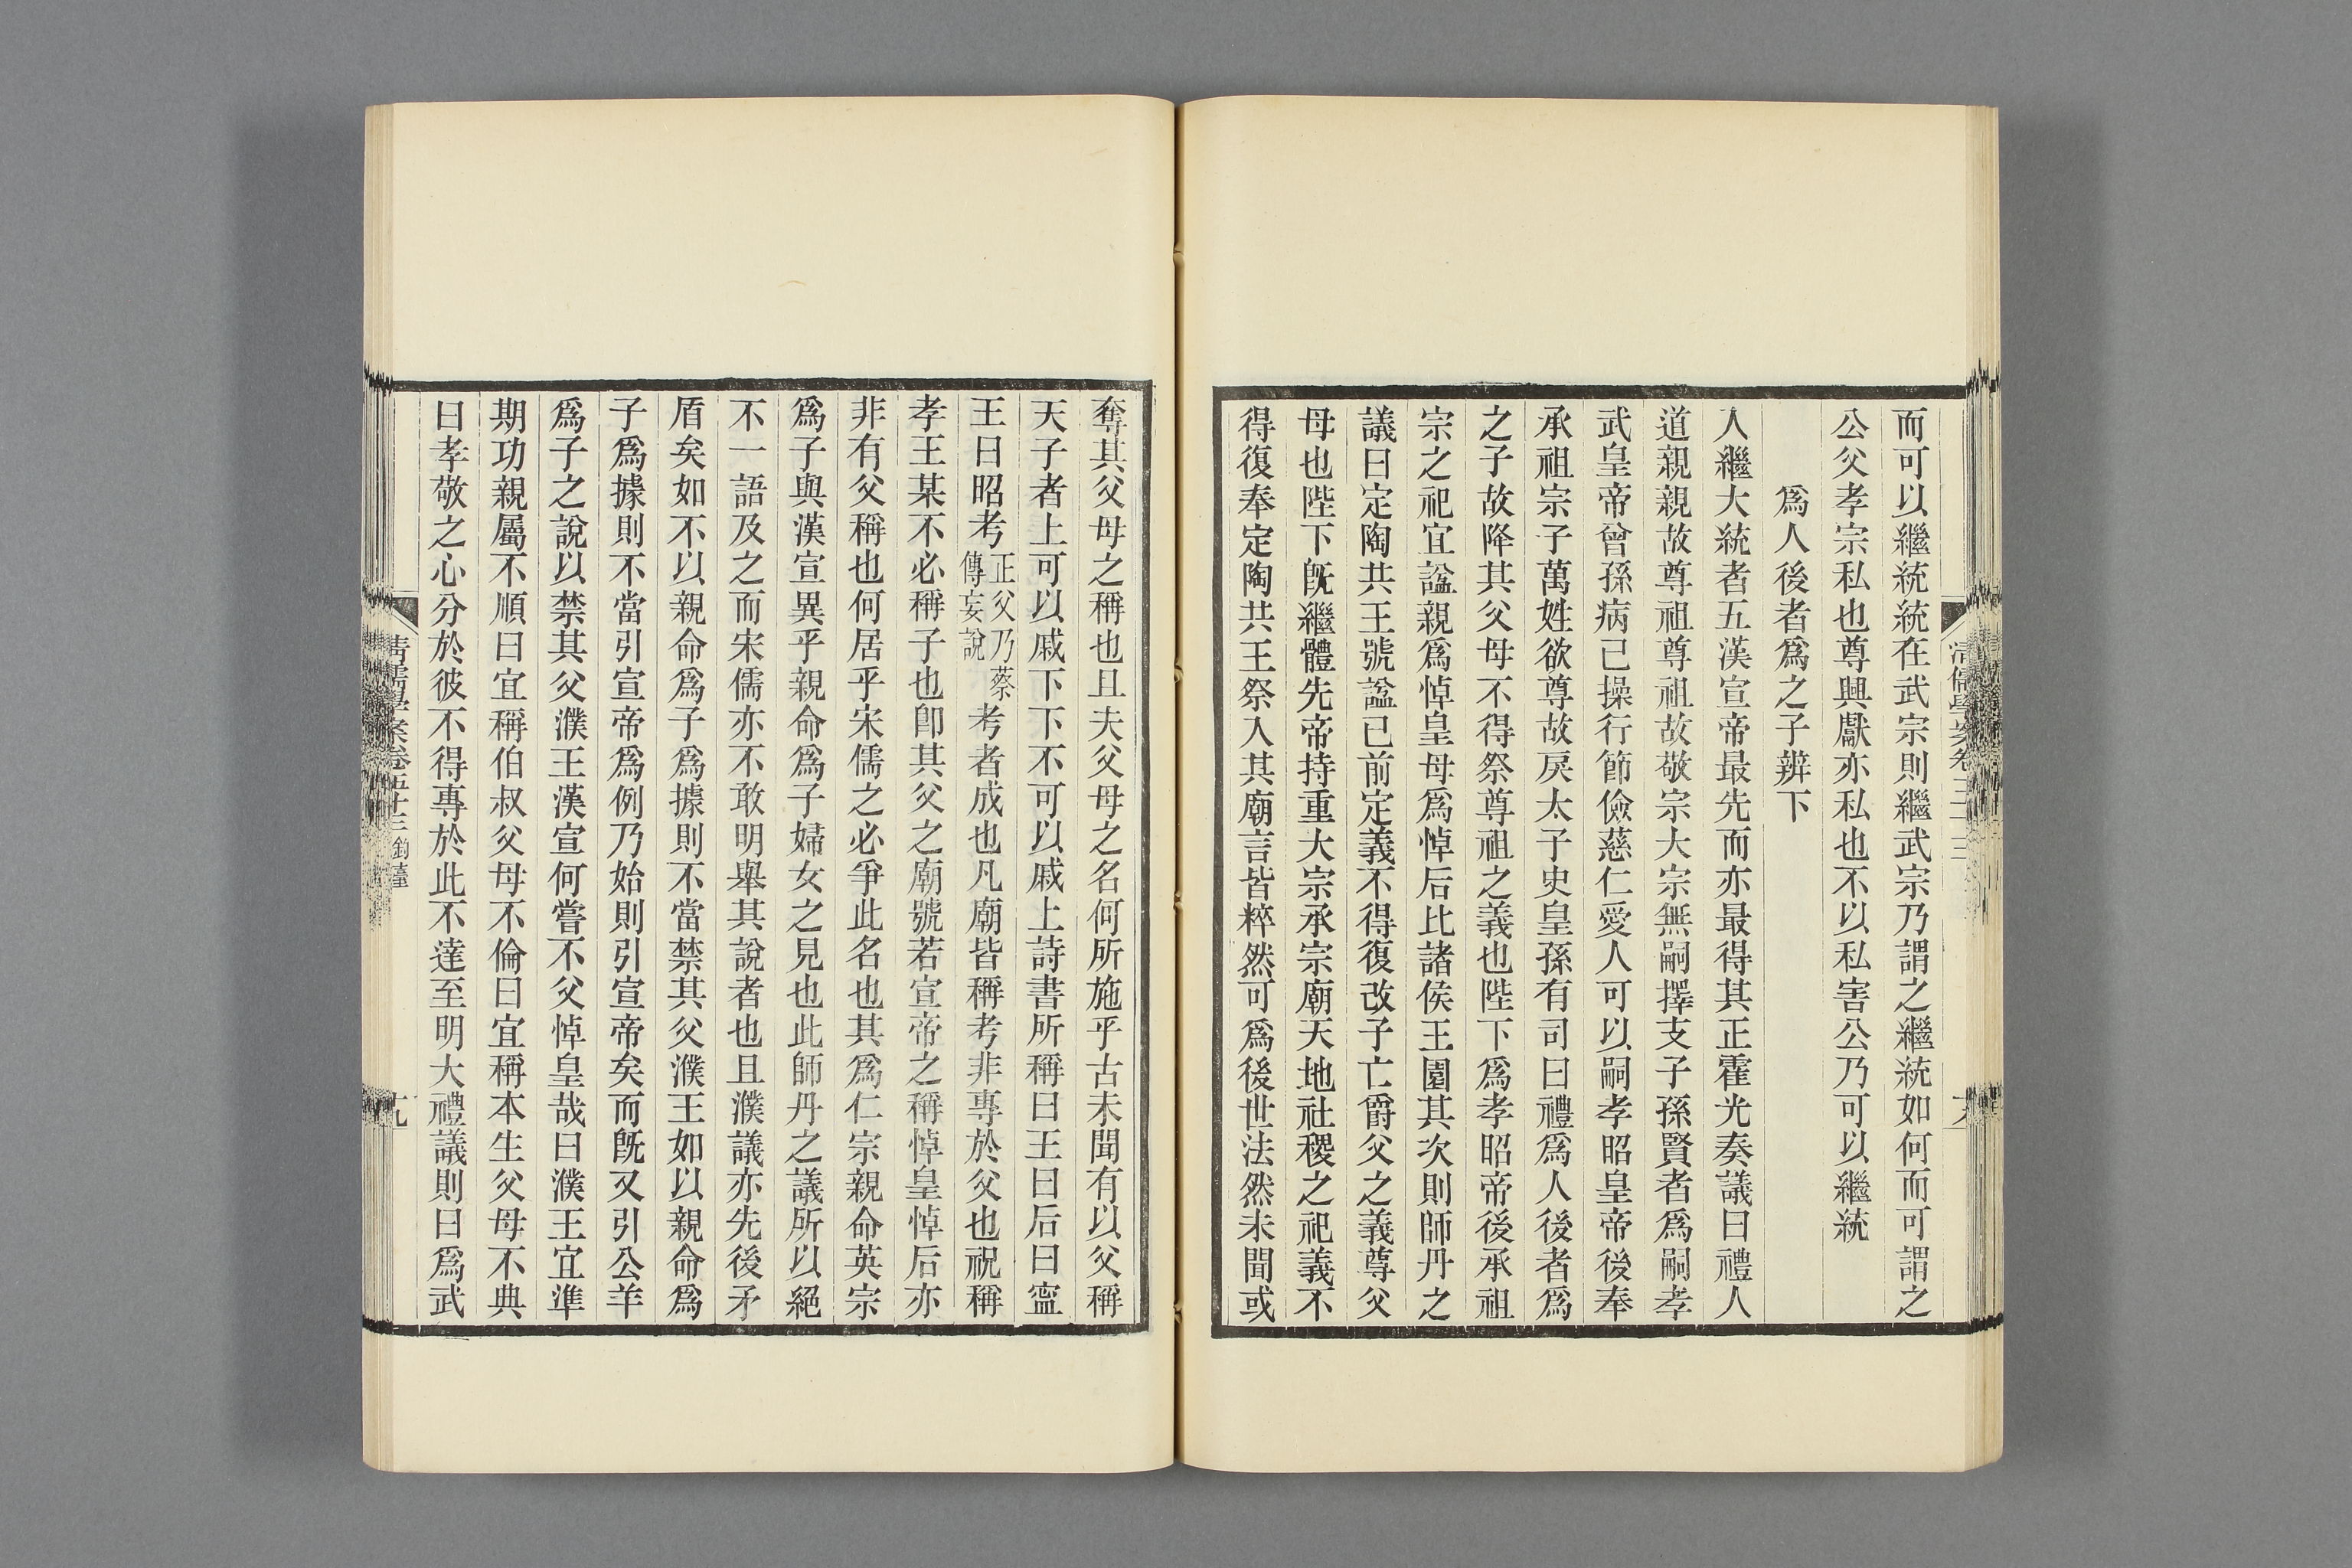 而可以繼統統在武宗則繼武宗乃謂之繼統如何而可謂之
公父孝宗私也尊興獻亦私也不以私害公乃可以繼統
爲人後者爲之子辨下
入繼大統者五漢宣帝最先而亦最得其正霍光奏議曰禮人
道親親故尊祖尊祖故敬宗大宗無嗣擇支子孫賢者爲嗣孝
武皇帝曾孫病已操行節儉慈仁愛人可以嗣孝昭皇帝後奉
承祖宗子萬姓欲尊故戾太子史皇孫有司曰禮爲人後者爲
之子故降其父母不得祭尊祖之義也陛下爲孝昭帝後承祖
宗之祀宜諡親爲悼皇母爲悼后比諸侯王園其次則師丹之
議曰定陶共王號諡已前定義不得復改子亡爵父之義尊父
母也陛下旣繼體先帝持重大宗承宗廟天地社稷之祀義不
得復奉定陶共王祭入其廟言皆粹然可爲後世法然未聞或
奪其父母之稱也且夫父母之名何所施乎古未聞有以父稱
天子者上可以戚下下不可以戚上詩書所稱曰王曰后曰寧
王曰昭考正父乃蔡傳妄說考者成也凡廟皆稱考非專於父也祝稱
孝王某不必稱子也卽其父之廟號若宣帝之稱悼皇悼后亦
非有父稱也何居乎宋儒之必爭此名也其爲仁宗親命英宗
爲子與漢宣異乎親命爲子婦女之見也此師丹之議所以絕
不一語及之而宋儒亦不敢明舉其說者也且濮議亦先後矛
盾矣如不以親命爲子爲據則不當禁其父濮王如以親命爲
子爲據則不當引宣帝爲例乃始則引宣帝矣而旣又引公羊
爲子之說以禁其父濮王漢宣何嘗不父悼皇哉曰濮王宜準
期功親屬不順曰宜稱伯叔父母不倫曰宜稱本生父母不典
曰孝敬之心分於彼不得專於此不達至明大禮議則曰爲武
清儒學案卷五十三鈞臺